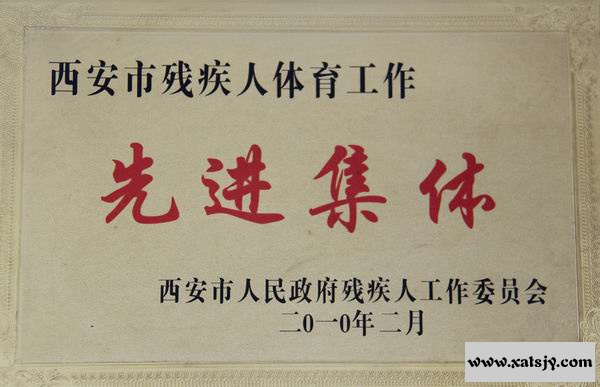 西安市残疾人体育工作
先进集体
西安市人民政府残疾人工作委员会
二0一0年二月
www.xatsjy.com